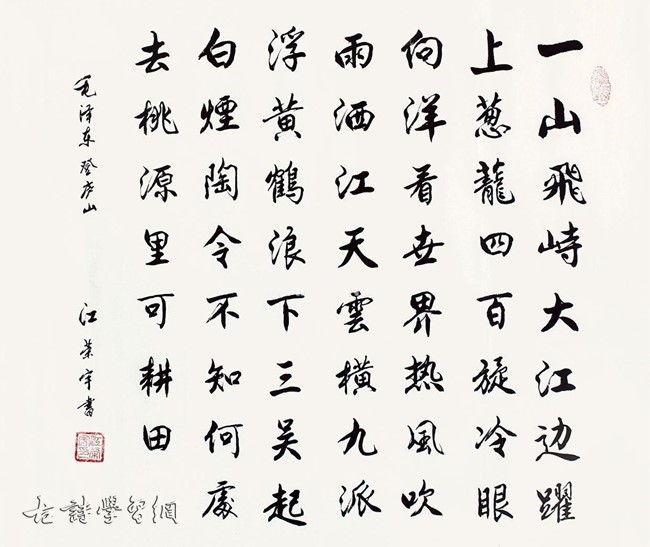 一山飛峙大江边躍
上葱蘢四百旋冷眼
向洋看世界热風吹
雨洒江天雲橫九派
浮黄鶴浪下三吴起
白煙陶令不知何處
去桃源里可耕田
毛泽东登庐山
江荣宇書
詩學習網